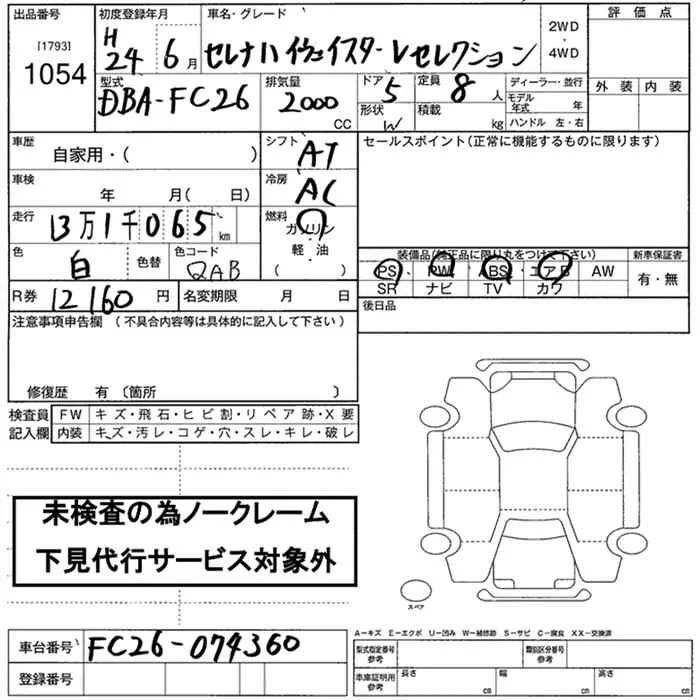 出品番号 初度登録年月 車名・グレード 評価点
[1793] 1054 H24 6月 セレナハイウェイスターVセレクション 2WD・4WD
型式 排気量 ドア 5 定員 8人 ディーラー・並行 外装 内装
DBA-FC26 2000 CC 形状 W 積載 kg モデル年式 年 ハンドル 左・右
車歴 シフト セールスポイント(正常に機能するものに限ります)
自家用・( ) AT
車検 冷房
年 月( 日) AC
走行 燃料
13万1千065km ガソリン
色 色替 色コード 軽・油 装備品(純正品に限り丸をつけて下さい) 新車保証書
白 QAB ( ) PS、PW ABS エアB AW 有・無
SR ナビ TV カワ
R券 12160円 名変期限 月 日 後日品
注意事項申告欄(不具合内容等は具体的に記入して下さい)
修復歴 有〔箇所 〕
検査員 FW キズ・飛石・ヒビ割・リペア跡・X要
記入欄 内装 キズ・汚レ・コゲ・穴・スレ・キレ・破レ
未検査の為ノークレーム
下見代行サービス対象外
スペア
A-キズ E-エクボ U-凹み W-補修跡 S-サビ C-腐食 XX-交換済
車台番号 FC26-074360 型式指定番号 参考 類別区分番号 参考
登録番号 車庫証明用 参考 長さ cm 幅 cm 高さ cm